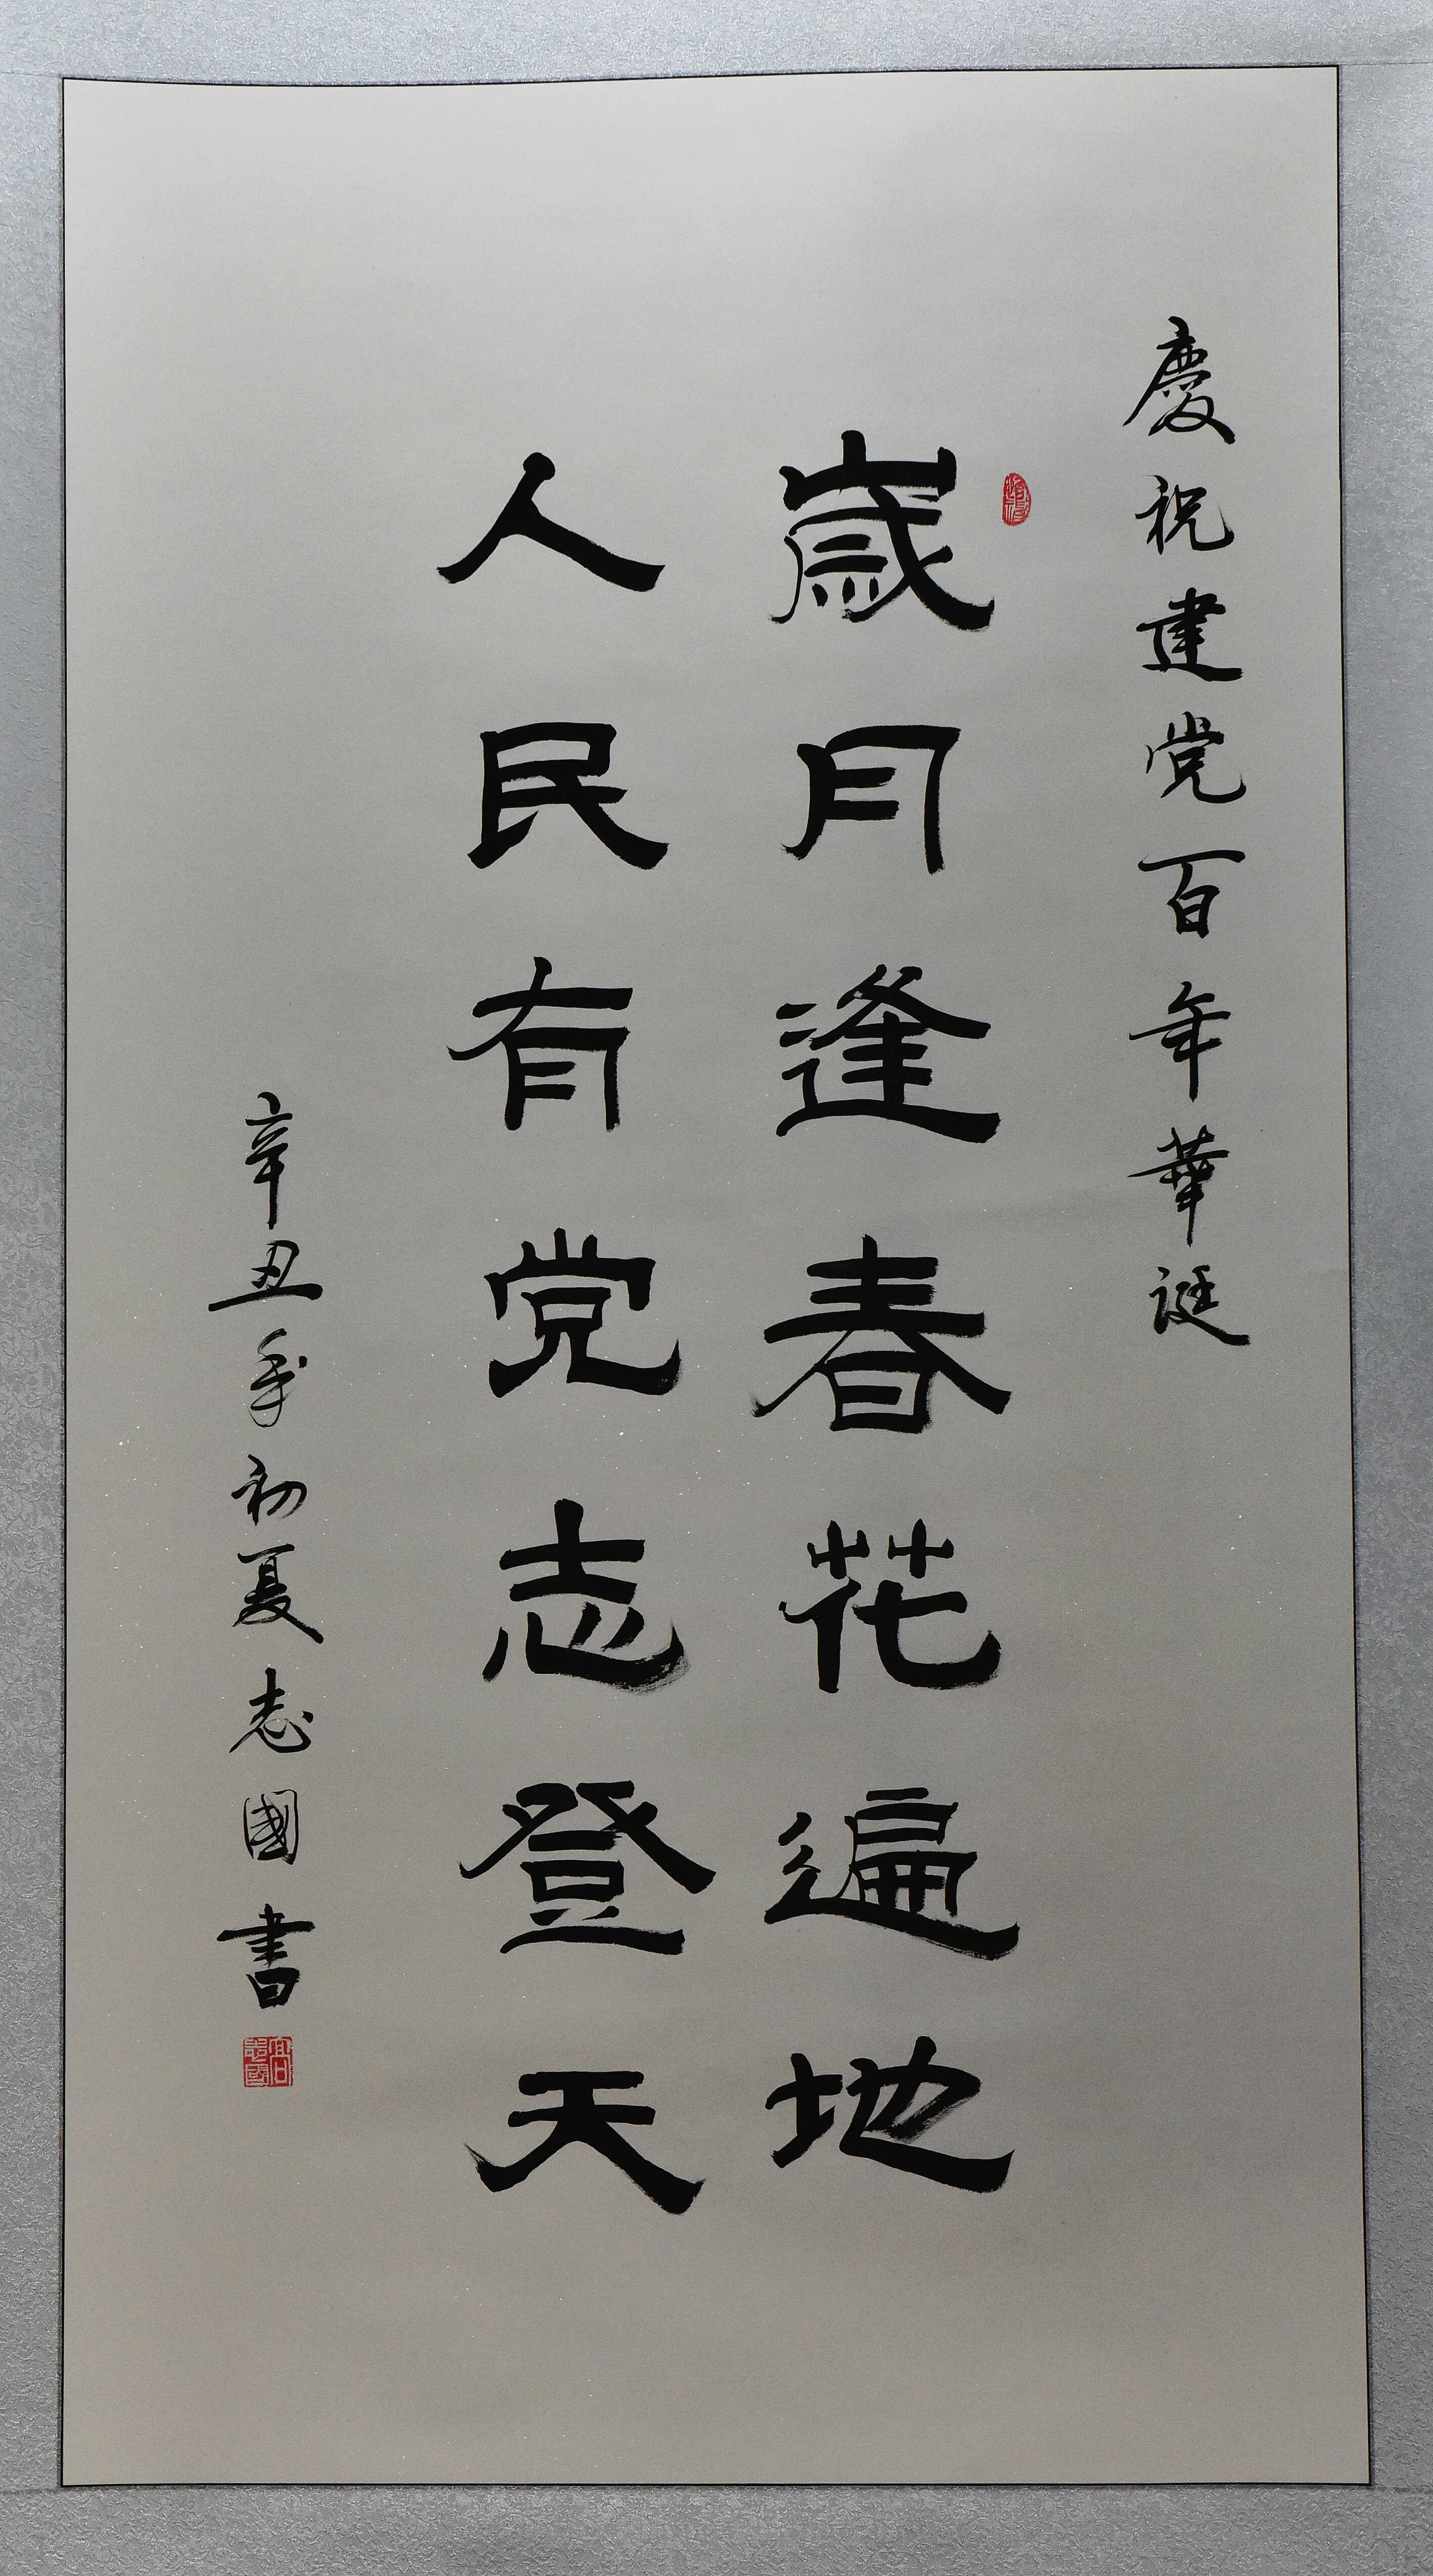 慶祝建党百年華诞
歲月逢春花遍地
人民有党志登天
辛丑年初夏志國書